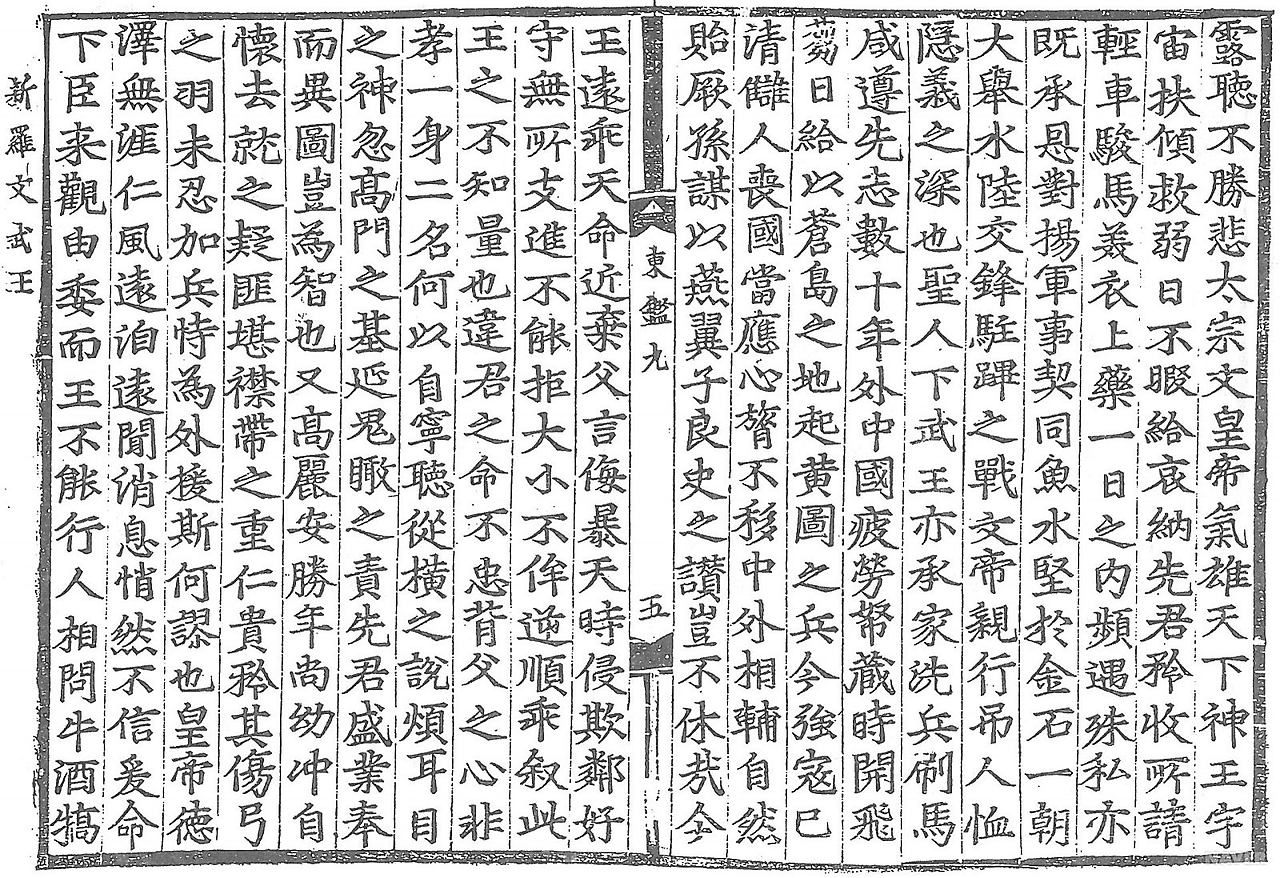 露聽不勝悲太宗文皇帝氣雄天下神王宇
宙扶傾救弱日不暇給哀納先君矜收所請
輕車駿馬美衣上藥一日之內頻遇殊私亦
既承恩對揚軍事契同魚水堅於金石一朝
大擧水陸交鋒駐蹕之戰文帝親行吊人恤
隱義之深也聖人下武王亦承家洗兵刷馬
咸遵先志數十年外中國疲勞帑藏時開飛
蒭日給以蒼島之地起黃圖之兵今強寇已
清讎人喪國當應心膂不移中外相輔自然
貽厥孫謀以燕翼子良史之讚豈不休哉今
東鑑九
五
王遠乖天命近棄父言侮暴天時侵欺鄰好
守無所支進不能拒大小不侔逆順乖叙此
王之不知量也違君之命不忠背父之心非
孝一身二名何以自寧聽從橫之說煩耳目
之神忽高門之基延鬼瞰之責先君盛業奉
而異圖豈為智也又高麗安勝年尚幼冲自
懷去就之疑匪堪襟帶之重仁貴矜其傷弓
之羽未忍加兵恃為外援斯何謬也皇帝德
澤無涯仁風遠洎遠聞消息悄然不信爰命
下臣来觀由委而王不能行人相問牛酒犒
新羅文武王